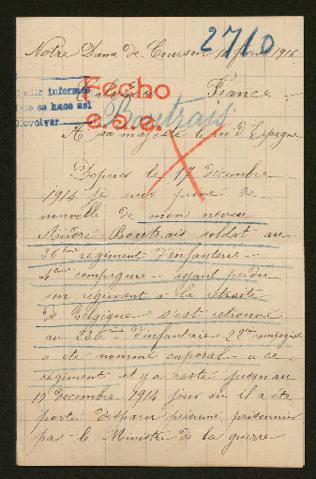 Notre Dame de Courson 1916
2710
Calvados France
informes
se hace así
devolver
Fecho
Boutrais
A sa majesté le roi d'Espagne
Depuis le 17 décembre
1914 je suis privé de
nouvelle de mon neveu
André Boutrais soldat au
36ème régiment d'infanterie
4ème compagnie ayant perdu
son régiment à la retraite
de Belgique s'est retrouvé
au 236ème d'infanterie 22ème compagnie
a été nommé caporal a ce
régiment et y a resté jusqu'au
17 décembre 1914 jour où il a été
porté disparu présumé prisonnier
par le Ministre de la guerre